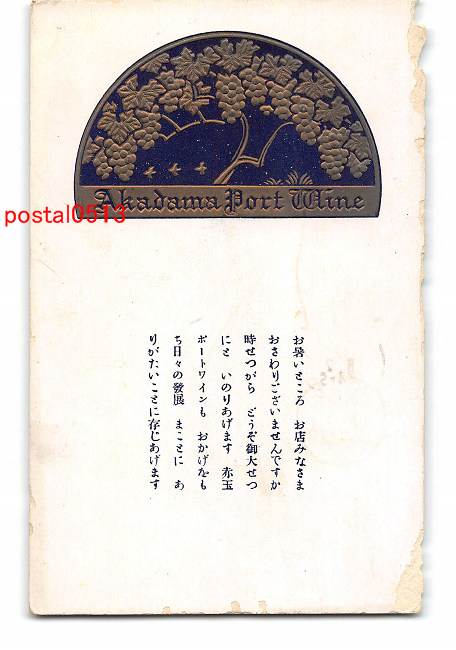 Akadama Port Wine
postal0513
お暑いところ お店みなさま
おさわりございませんですか
時せつがら どうぞ御大せつ
にと いのりあげます 赤玉
ポートワインも おかげをも
ち日々の發展 まことに あ
りがたいことに存じあげます